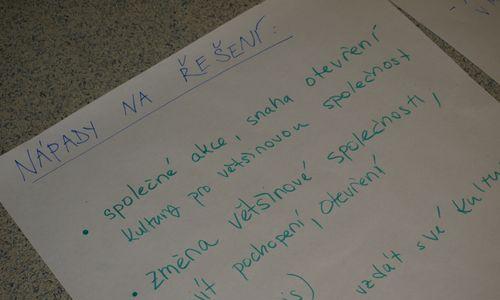 NÁPADY NA ŘEŠENÍ:
• společné akce, snaha otevření
kultury pro většinovou společnost
• změna většinové společnosti,
pochopení, otevření
vzdát své kultu